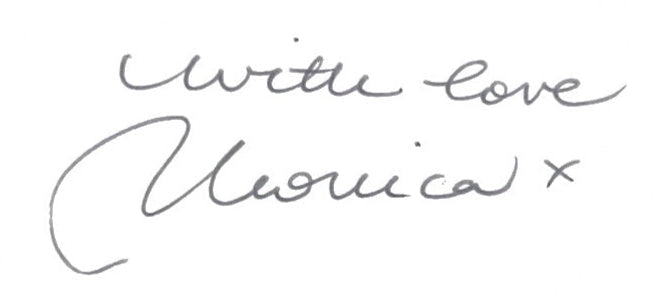 With love
Monica x